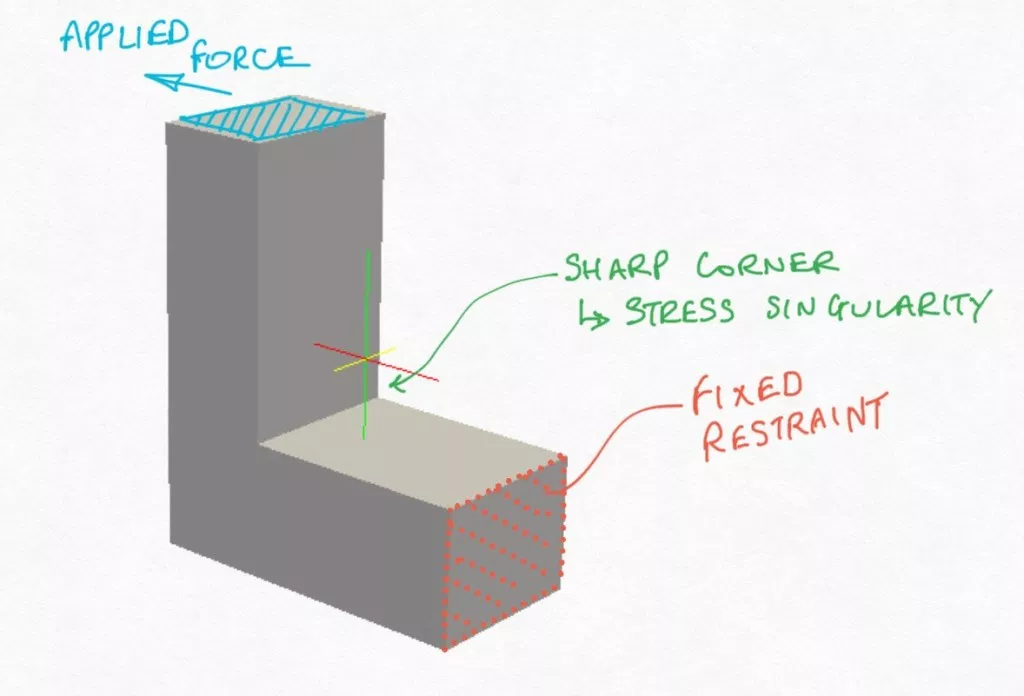 APPLIED
FORCE
SHARP CORNER
↳ STRESS SINGULARITY
FIXED
RESTRAINT